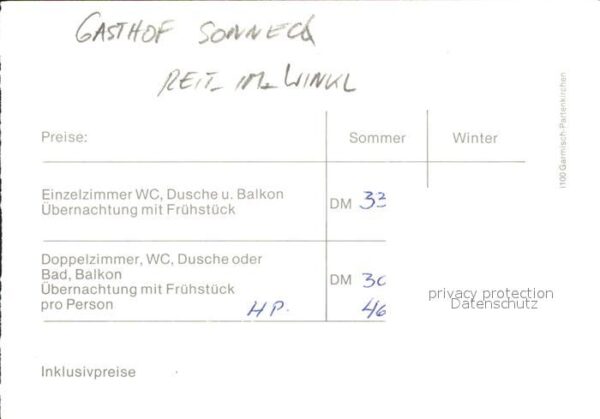 GASTHOF SONNECK
REIT-IM-WINKL
Preise:
Sommer
Winter
Einzelzimmer WC, Dusche u. Balkon
Übernachtung mit Frühstück
DM 33
Doppelzimmer, WC, Dusche oder
Bad, Balkon
Übernachtung mit Frühstück
pro Person
DM 30
HP. 46
Inklusivpreise
privacy protection
Datenschutz
i100 Garmisch-Partenkirchen